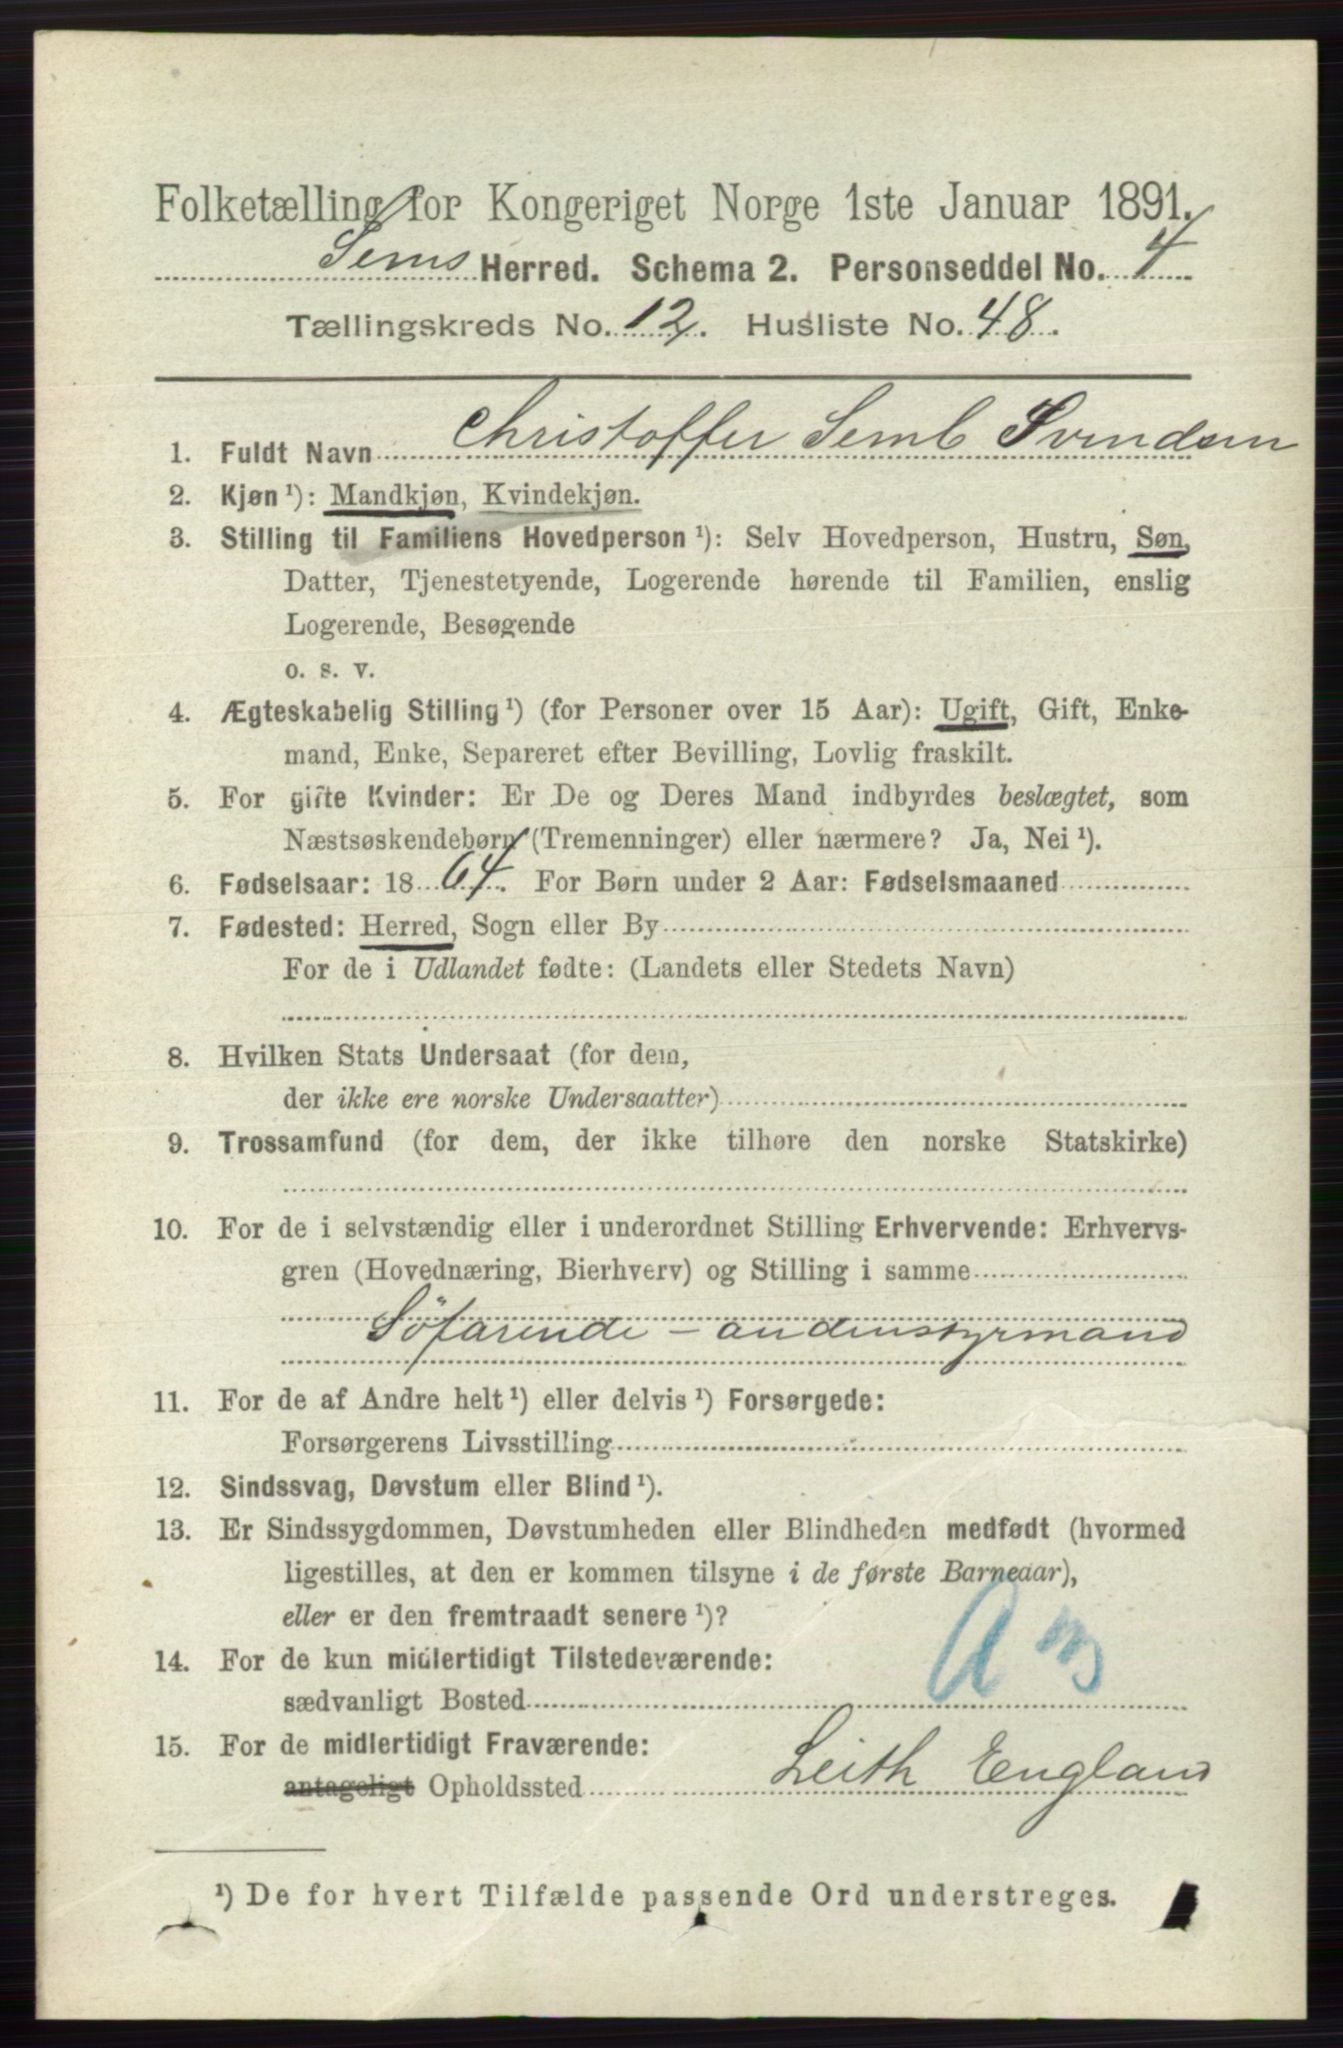 Folketælling for Kongeriget Norge 1ste Januar 1891.
Sems Herred. Schema 2. Personseddel No. 4
Tællingskreds No. 12. Husliste No. 48.
1. Fuldt Navn Christoffer Semb Svendsen
2. Kjøn¹): Mandkjøn, Kvindekjøn.
3. Stilling til Familiens Hovedperson¹): Selv Hovedperson, Hustru, Søn,
Datter, Tjenestetyende, Logerende hørende til Familien, enslig
Logerende, Besøgende
o. s. v.
4. Ægteskabelig Stilling¹) (for Personer over 15 Aar): Ugift, Gift, Enke-
mand, Enke, Separeret efter Bevilling, Lovlig fraskilt.
5. For gifte Kvinder: Er De og Deres Mand indbyrdes beslægtet, som
Næstsøskendebørn (Tremenninger) eller nærmere? Ja, Nei¹).
6. Fødselsaar: 1864. For Børn under 2 Aar: Fødselsmaaned
7. Fødested: Herred, Sogn eller By
For de i Udlandet fødte: (Landets eller Stedets Navn)
8. Hvilken Stats Undersaat (for dem,
der ikke ere norske Undersaatter)
9. Trossamfund (for dem, der ikke tilhøre den norske Statskirke)
10. For de i selvstændig eller i underordnet Stilling Erhvervende: Erhvervs-
gren (Hovednæring, Bierhverv) og Stilling i samme
Söfarende - andenstyrmand
11. For de af Andre helt¹) eller delvis¹) Forsørgede:
Forsørgerens Livsstilling
12. Sindssvag, Døvstum eller Blind¹).
13. Er Sindssygdommen, Døvstumheden eller Blindheden medfødt (hvormed
ligestilles, at den er kommen tilsyne i de første Barneaar),
eller er den fremtraadt senere¹)?
14. For de kun midlertidigt Tilstedeværende:
sædvanligt Bosted
15. For de midlertidigt Fraværende:
antageligt Opholdssted Leith England
¹) De for hvert Tilfælde passende Ord understreges.